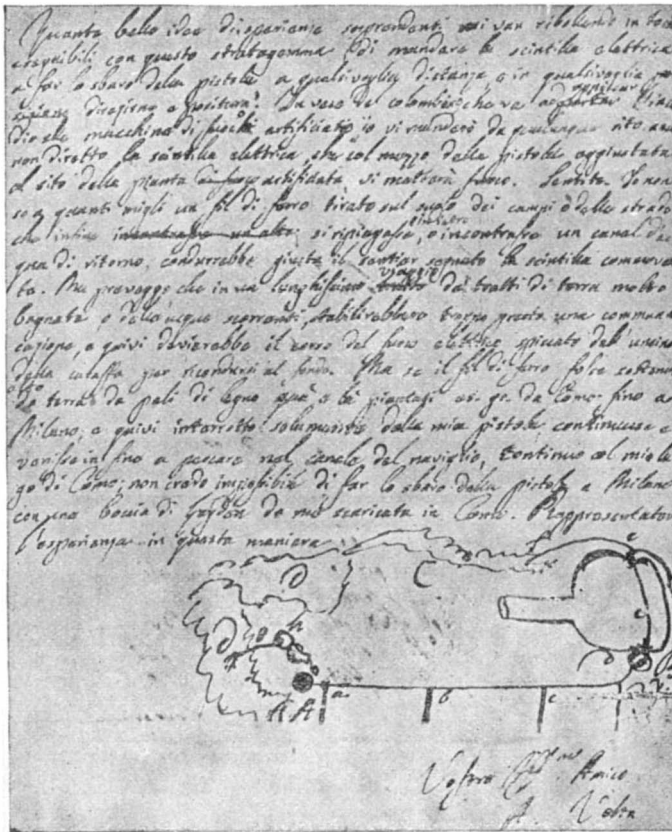 Quante belle idee di sperienze sorprendenti mi van ribollendo in testa
eseguibili con questo stratagemma di mandare la scintilla elettrica
a far lo sbaro della pistola a qualsivoglia distanza e in qualsivoglia
direzione e positura! In vece del colombino che va ad
macchina di fuochi artifiziati io vi manderò da qualunque sito anche
non diretto la scintilla elettrica, che col mezzo della pistola aggiustata
al sito della pianta artifiziata vi metterà fuoco. Sentite. Io non
so a quanti migli un fil di ferro tirato sul suolo dei campi o della strada
che infine si ripiegasse, o incontrasse un canal d'ac
qua di ritorno, condurrebbe giusta il sentier segnato la scintilla commova
ta. Ma preveggo che in un lunghissimo viaggio de' tratti di terra molto
bagnata, o delle acque scorrenti, stabilirebbero troppo presto una communi
cazione, e quivi devierebbe il corso del fuoco elettrico spiccato dall' uncino
della caraffa per ricondursi al fondo. Ma se il fil di ferro fosse sostenu
to alto da terra da pali di legno qua e là piantati ex. gr. da Como fino a
Milano; e quivi interrotto solamente dalla mia pistola continuasse e
venisse in fino a pescare nel canale del naviglio, continuo col mio la
go di Como; non credo impossibile di far lo sbaro della pistola a Milano
con una boccia di Leyden da me scaricata in Como. Rappresentatevi
l'esperienza in questa maniera
D C
D
A A a b c
Vostro Amico
A. Volta